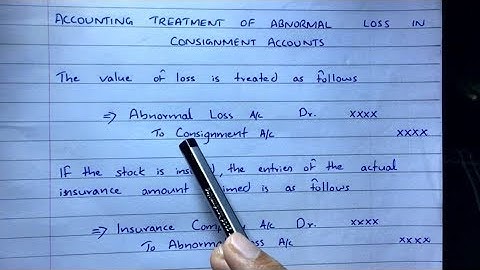 ACCOUNTING TREATMENT OF ABNORMAL LOSS IN
CONSIGNMENT ACCOUNTS
The value of loss is treated as follows
⇒ Abnormal Loss A/c Dr. xxxx
To Consignment A/c xxxx
IF the stock is the entries of the actual
insurance amount is as follows
⇒ Insurance A/c Dr. xxxx
To Loss A/c xxxx